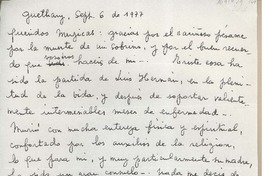 Guethary, Sept. 6 de 1977
Queridos Mugicas: gracias por el cariñoso pésame
por la muerte de mi sobrino, y por el buen recuer
do que vosotros hacéis de mi -. Triste cosa ha
sido la partida de Luis Hernán, en la pleni
tud de la vida, y después de soportar valiente
mente interminables meses de enfermedad -.
Murió con mucha entereza física y espiritual,
confortado por los auxilios de la religión,
lo que para mi, y muy particularmente su madre,
ha sido un gran consuelo - Nada me decís de